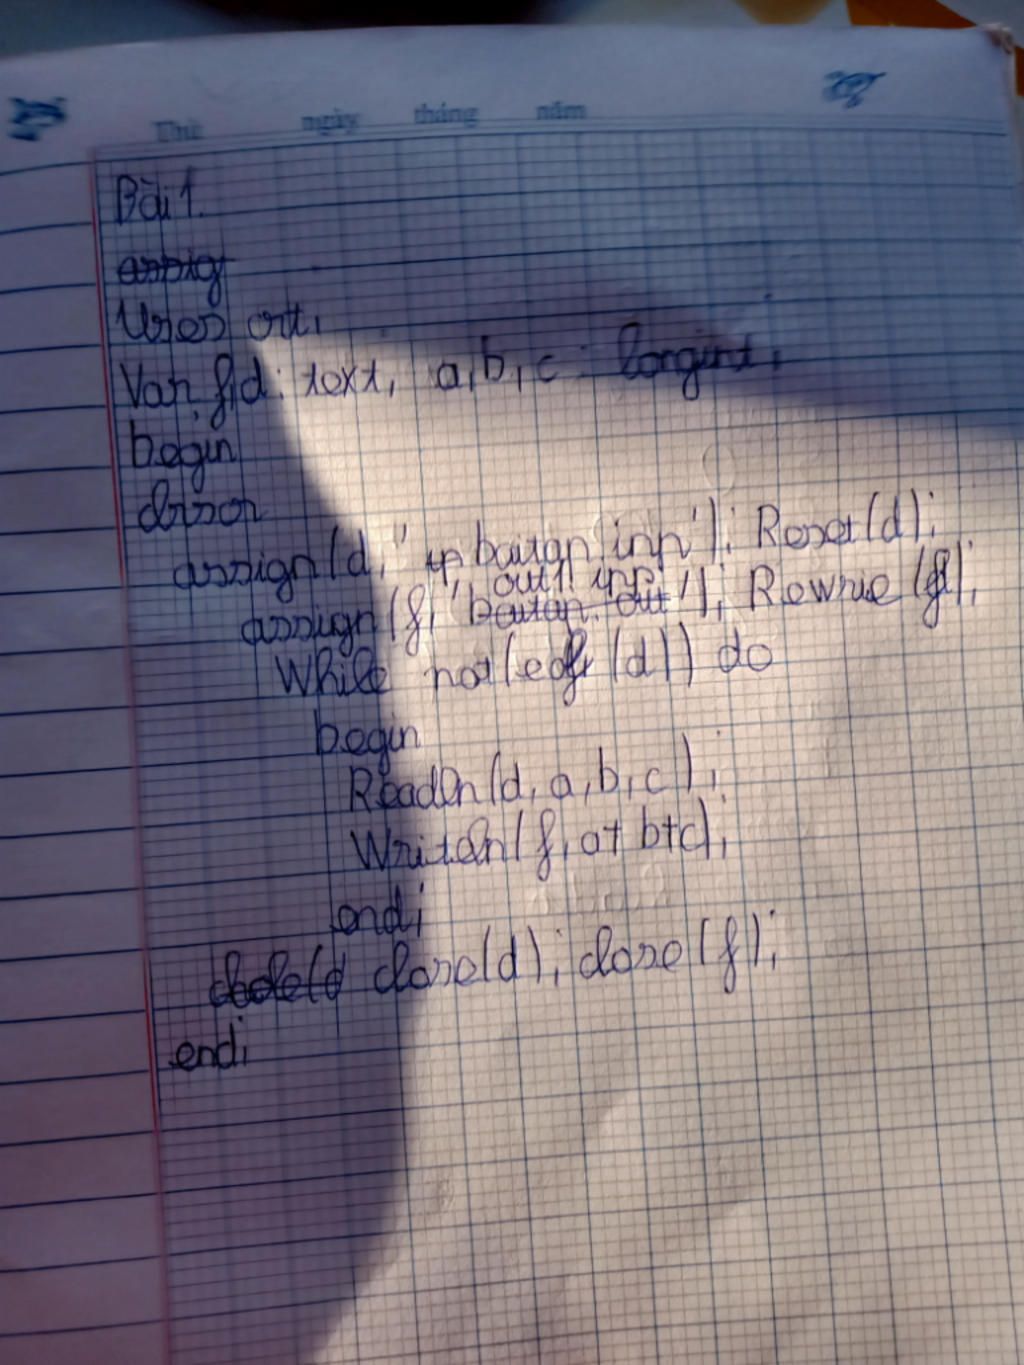 Thứ ngày tháng năm
Bài 1.
Uses crt;
Var f,d: text; a,b,c: longint;
begin
clrscr
assign(d, 'baitap.inp'); Reset(d);
out1.inp
assign(f, 'baitap.out'); Rewrite(f);
While not(eof(d)) do
begin
Readln(d, a, b, c);
Writeln(f, a+b+c);
end;
close(d); close(f);
end;